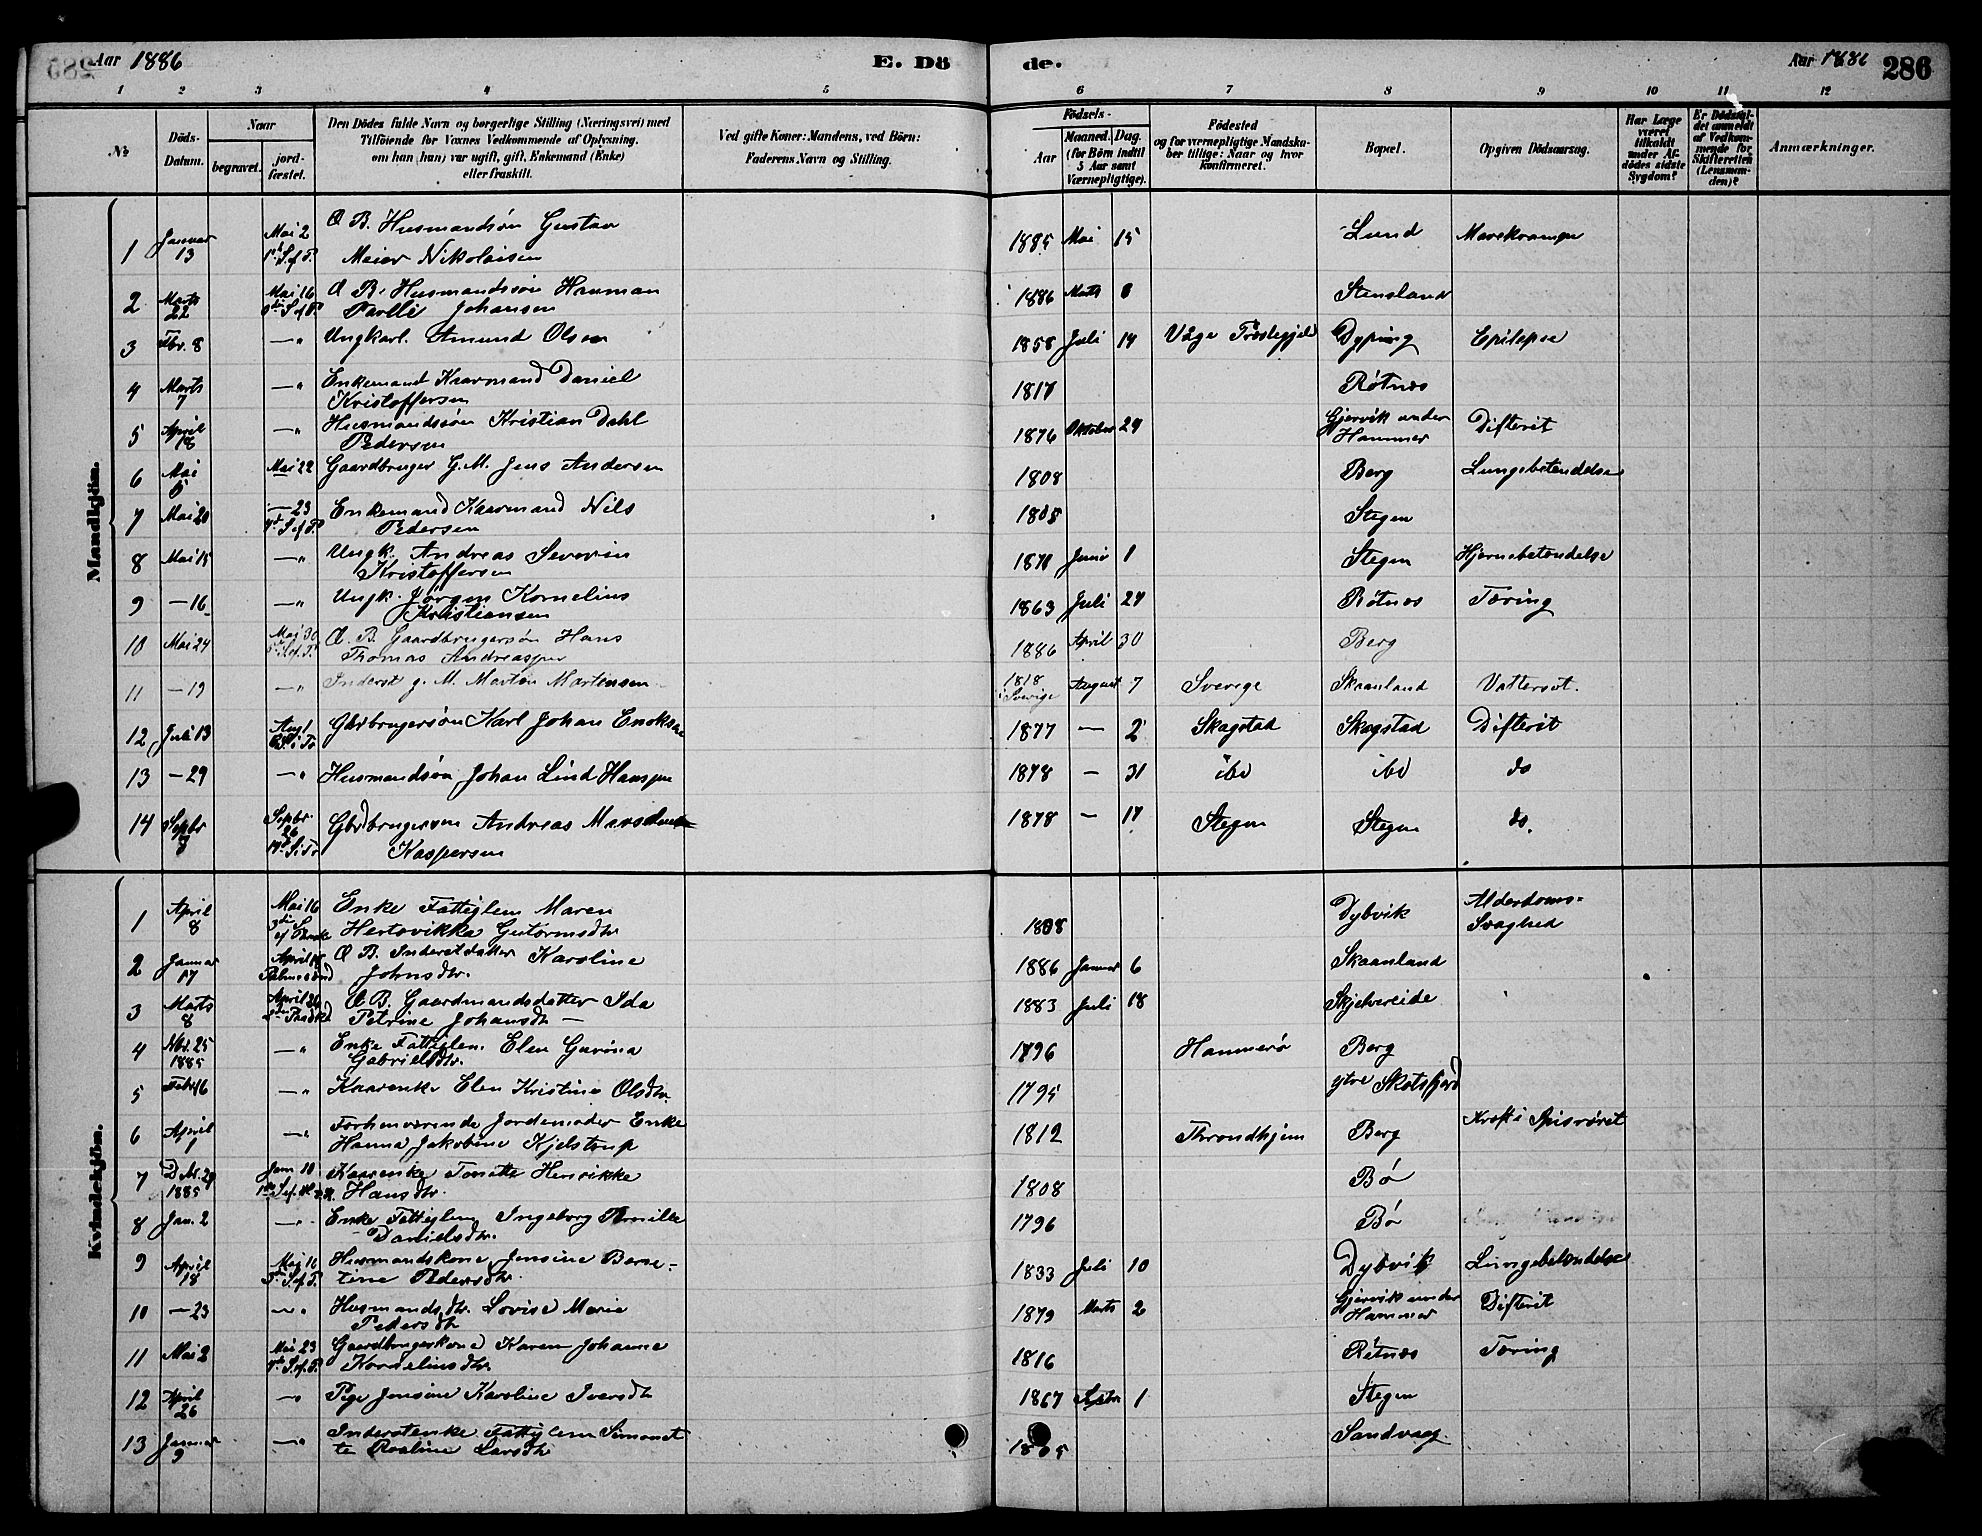 Aar 1886
E. Dö
de.
Aar 1886
286
1 2 3 4 5 6 7 8 9 10 11 12
№
Döds-
Datum.
Naar
begravet.
jord-
fæstet.
Den Dödes fulde Navn og borgerlige Stilling (Næringsvei) med
Tilföiende for Voxnes Vedkommende af Oplysning,
om han (hun) var ugift, gift, Enkemand (Enke)
eller fraskilt.
Ved gifte Koner: Mandens, ved Börn:
Faderens Navn og Stilling.
Födsels-
Aar
Maaned. Dag.
(for Börn indtil
5 Aar samt
Værnepligtige).
Födested
og for værnepligtige Mandska-
ber tillige: Naar og hvor
konfirmeret.
Bopæl.
Opgiven Dödsaarsag.
Har Læge
været
tilkaldt
under Af-
dödes sidste
Sygdom?
Er Dödsfal-
det anmeldt
af Vedkom-
mende for
Skifteretten
(Lensman-
den)?
Anmærkninger.
Mandkjön.
1 Januar 13 Mai 2 O. B. Husmandsön Gustav
Meier Nikolaisen 1885 Mai 15 Lund Mavekrampe
2 Marts 22 Mai 16 O B. Husmandssön Herman
Johansen 1886 Marts Stensland
3 Fbr. 8 —" Ungkarl. Amund Olsen 1858 Juli 14 Våge Præstegjeld Dyping Epilepsi
4 Marts 7 —" Enkemand Kaarmand Daniel
Kristoffersen 1817 Røtnes
5 April 18 —" Husmandssön Kristian Dahl
Pedersen 1876 Oktober 29 Gjervik under
Hammer Difterit
6 Mai Mai 22 Gaardbruger G. M. Jens Andersen 1808 Berg Lungebetendelse
7 Mai 20 — 23 Enkemand Kaarmand Nils
Pedersen 1808 Stegen
8 Mai 15 —" Ungk. Andreas Severin
Kristoffersen Juni 1 Stegen Hjernebetendelse
9 — 16 —" Ungk. Jörgen Kornelius
Kristiansen 1863 Juli 27 Røtnes Tæring
10 Mai 24 Mai 30 O. B. Gaardbrugersön Hans
Thomas Andreassen 1886 April 30 Berg
11 — 19 —" Inderst g. M. Morten Mortensen 1818
i Sverige August 7 Sverige Skaanland Vattersot.
12 Juli 13 Aug 1 Gbrbrugersön Karl Johan Enoksen 1877 — 2 Skagstad Skagstad Difterit
13 — 29 —" Husmandsön Johan Lind Hanssen 1878 — 31 ibd ibd do
14 Septbr Septbr. 26 Gbrdbrugersøn Andreas
Kaspersen 1878 — 17 Stegen Stegen do.
Kvindekjön.
1 April 8 Mai 16 Enke Fattiglem Maren
Hertvikka Guttormsdtr 1808 Dybvik Alderdoms-
Svaghed
2 Januar 17 April 18
Palmesönd O B. Inderstdatter Karoline
Johnsdtr. 1886 Januar 6 Skaanland
3 Marts 8 April 26 O B. Gaardmandsdatter Ida
Petrine Johansdtr — 1883 Juli 18 Skjelvereide
4 Nbr. 25
1885 —" Enke Fattiglem. Elen Gurina
Gabrielsdtr. 1796 Hammerø Berg
5 Febr 16 —" Kaarenke Elen Kristine Olsdtr. 1795 ytre Skotsfjord
6 April 1 —" Forhenværende Jordemoder Enke
Hanna Jakobine Kjelstrup 1812 Throndhjem Berg Kræft i Spisrøret
7 Dbr. 29
1885 Jan. 10 Kaarenke Henrikke
Hansdtr. 1808 Bø
8 Jan. 2 —" Enke Fattiglem Ingeborg Pernille
Danielsdtr. 1796 Bö
9 April 18 Mai 16 Husmandskone Jensine Berse-
tine Pedersdtr. 1833 Juli 10 Dybvik Lungebetendelse
10 — 23 —" Husmandsdtr. Lovise Marie
Pedersdtr 1879 Marts 2 Gjervik under
Hammer Difterit
11 Mai 2 Mai 23 Gaardbrugerkone Karen Johanne
Kornelinsdtr. 1816 Røtnes Tæring
12 April 26 —" Pige Jensine Karoline Iversdtr 1867 Septbr 1 Stegen
13 Januar 9 —" Inderstenke Fattiglem Simonet
te Roaline Larsdtr Sandvaag